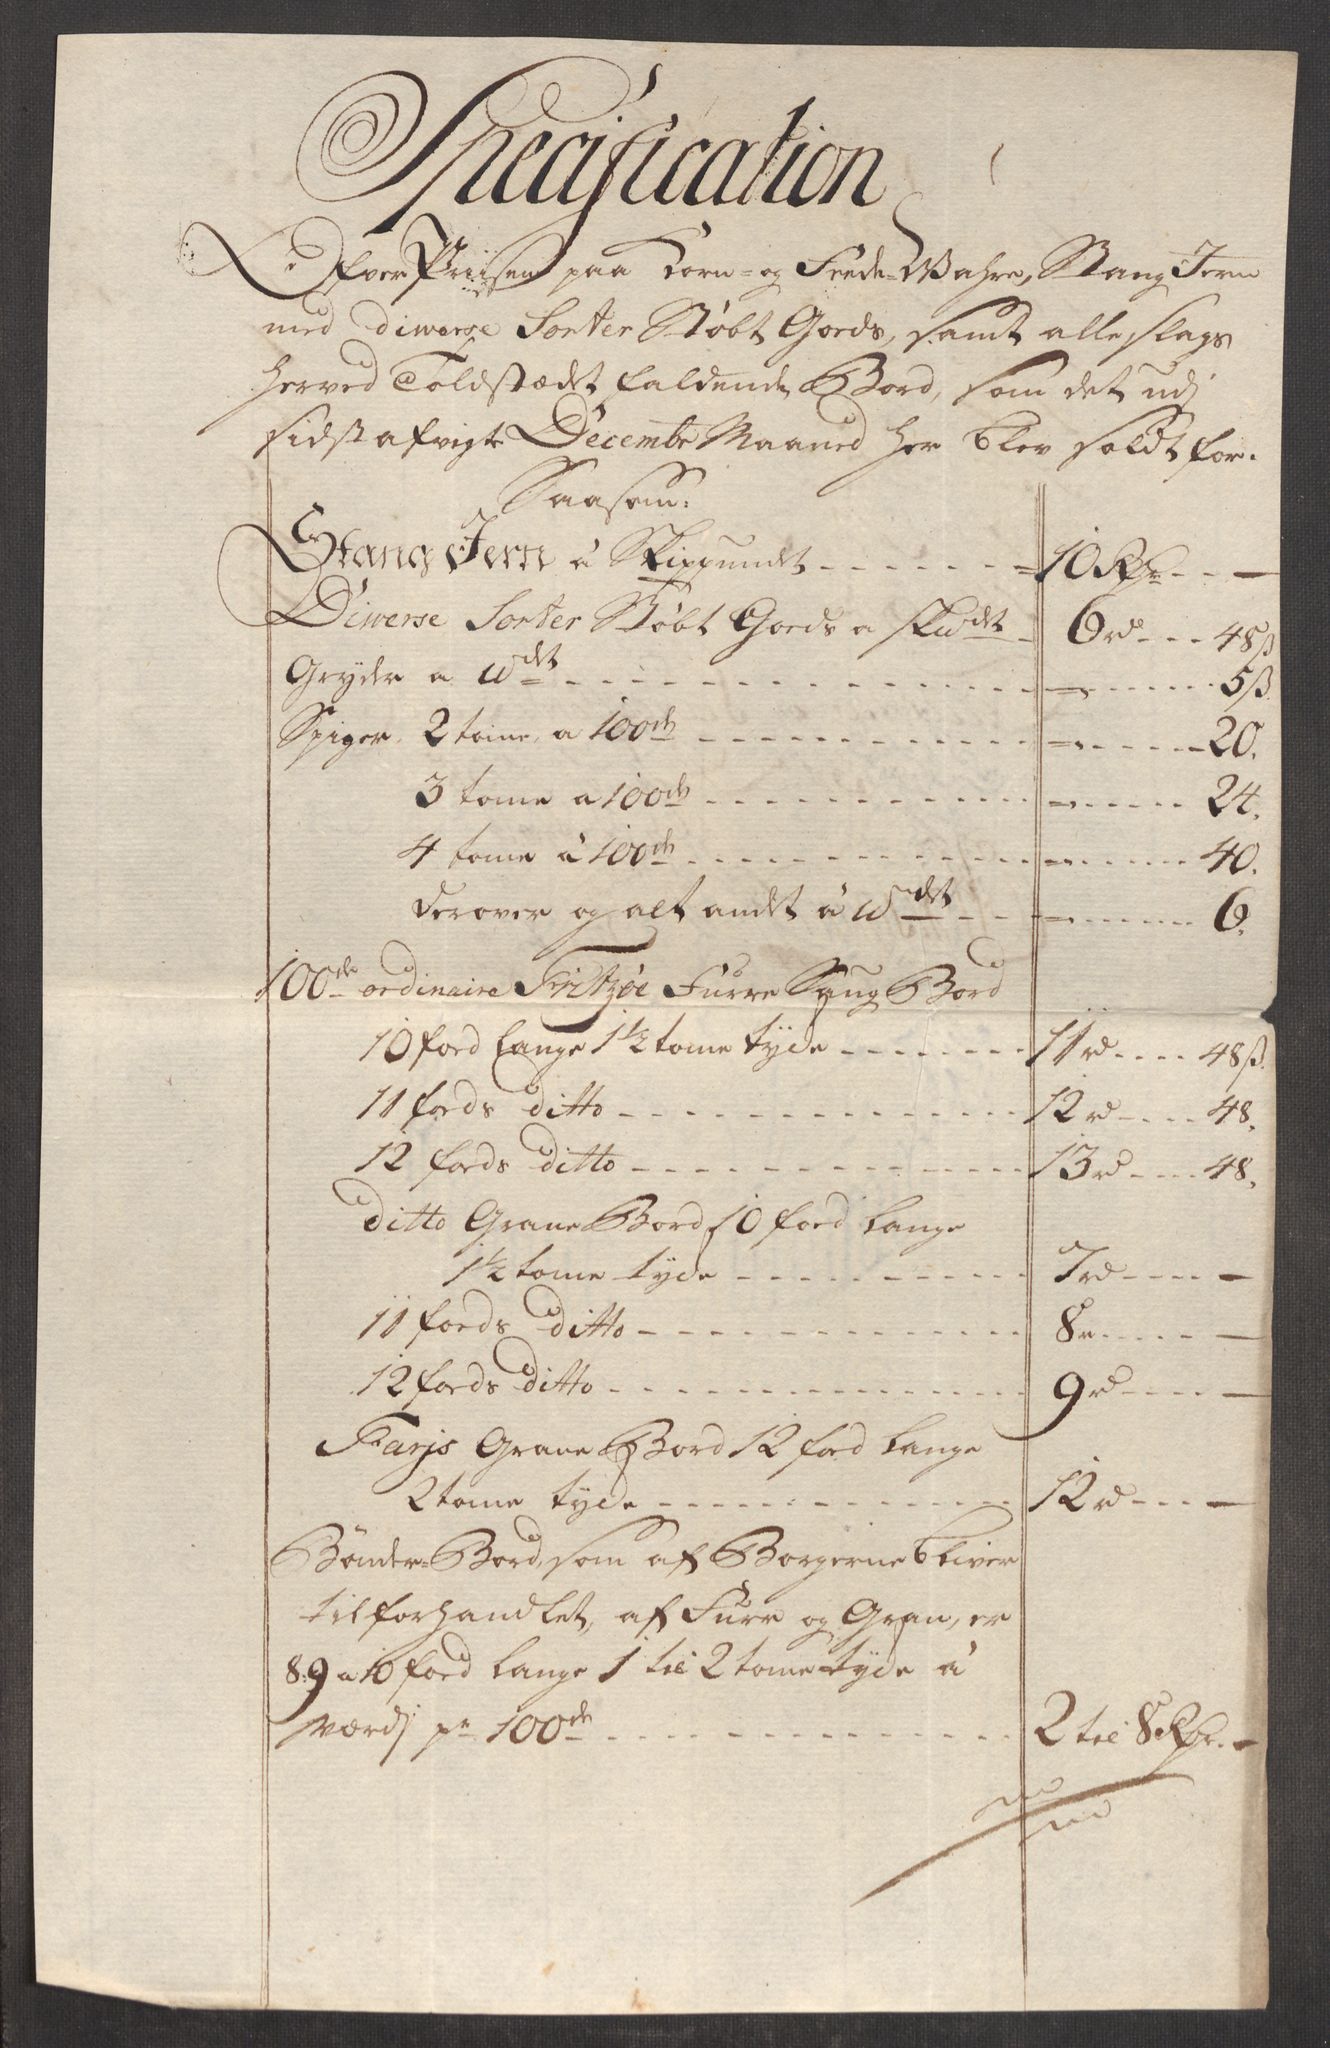 Specification
Ofver Priisen paa Korn- og Feede-Wahre, Stang Jern
med diverse Sorter Støbt Goeds, samt alle slags
herved Toldstædet faldende Bord, som det udj
sidst afvigte Decembr Maaned her blev soldt for.
Saasom:
Stang Jern â Skippundet 10 Rdr
Diverse Sorter Støbt Goeds a Skudet 6 rd 48 ß
Gryder a ℔det 5 ß.
Spiger. 2 tome a 100de 20.
3 tome a 100de 24.
4 tome â 100de 40.
derover og alt andet â ℔det 6.
100de ordinaire Fritzøe Furre Saug Bord
10 foed Lange 1½ tome tyde 11 rd 48 ß.
11 foeds ditto 12 rd 48.
12 foeds ditto 13 rd 48.
ditto Grane Bord 10 foed Lange
1½ tome tyde 7 rd
11 foeds ditto 8 r
12 foeds ditto 9 rd
Farjs Grane Bord 12 foed Lange
2 tome tyde 12 rd
Bønder-Bord, som af Borgerne bliver
tilforhandlet, af Furr og Gran, er
8. 9 a 10 foed Lange 1 til 2 tome tyde â
værdj pr 100de 2 til 8 Rdr.